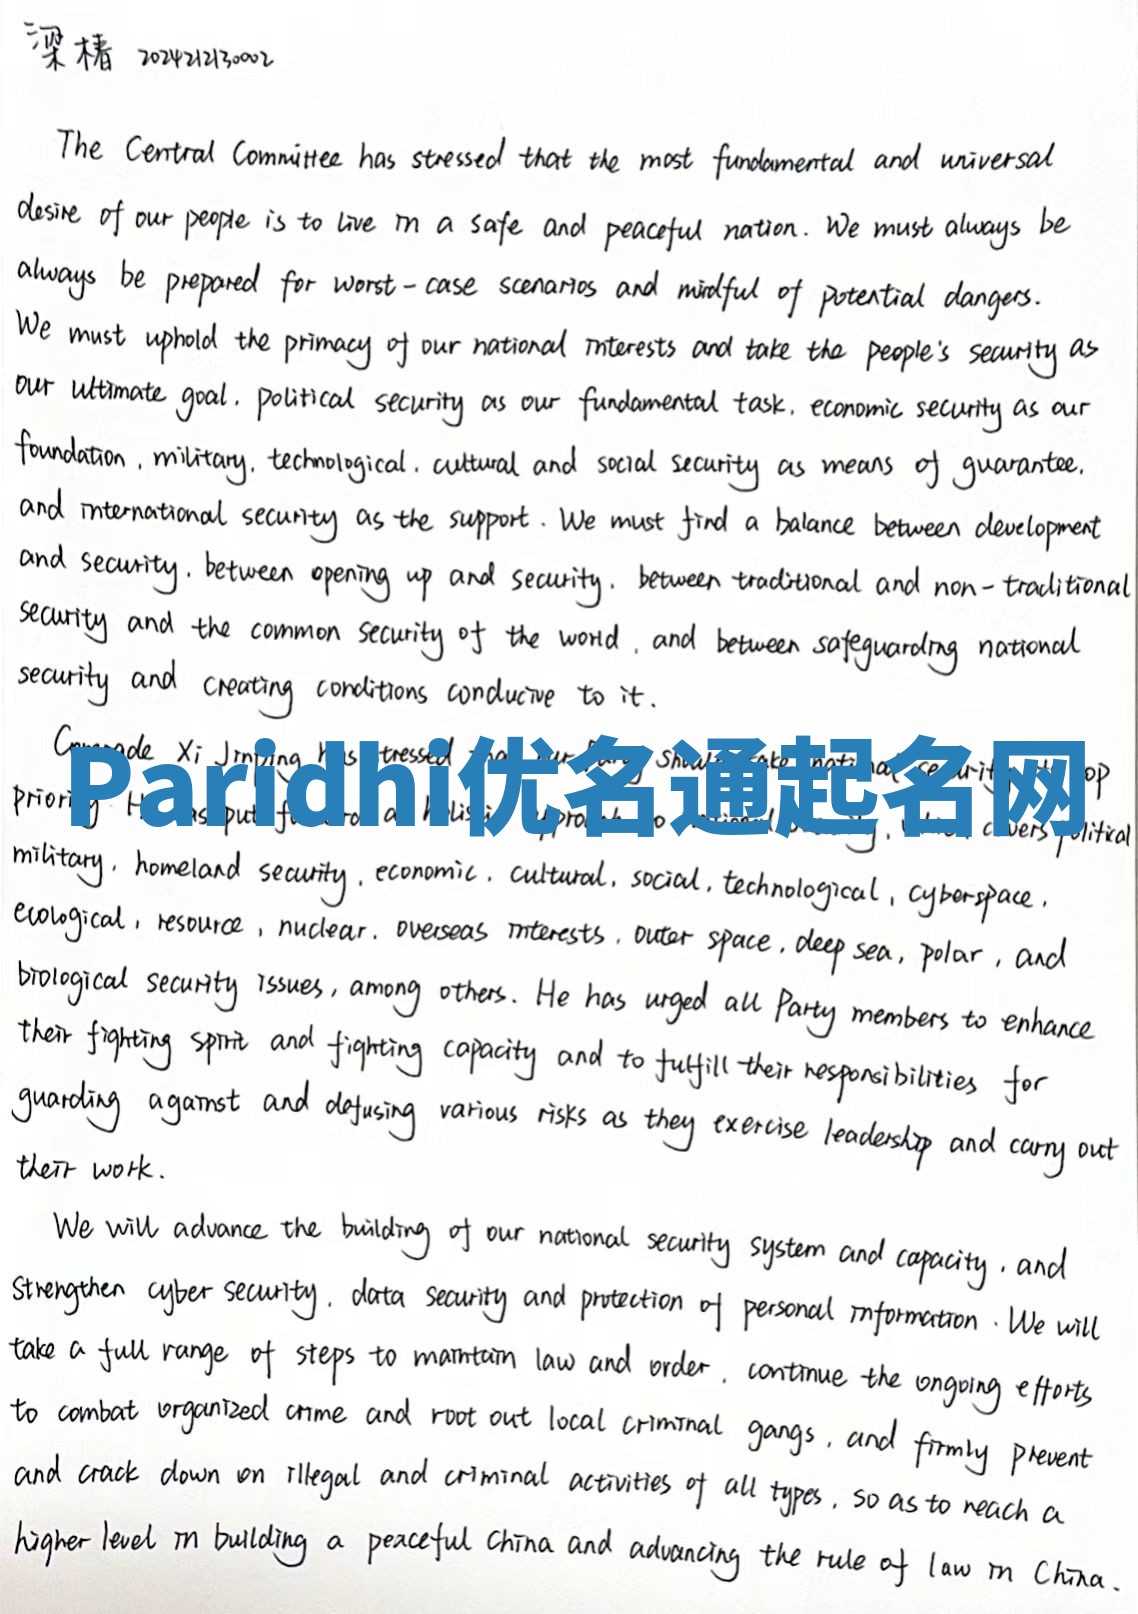 梁椿 2024212130002
The Central Committee has stressed that the most fundamental and universal
desire of our people is to live in a safe and peaceful nation. We must always be
always be prepared for worst-case scenarios and mindful of potential dangers.
We must uphold the primacy of our national interests and take the people's security as
our ultimate goal, political security as our fundamental task, economic security as our
foundation, military, technological, cultural and social security as means of guarantee,
and international security as the support. We must find a balance between development
and security, between opening up and security, between traditional and non-traditional
security and the common security of the world, and between safeguarding national
security and creating conditions conducive to it.
Xi Jinping stressed national
Paridhi优名通起名网
priority put a covers political
military, homeland security, economic, cultural, social, technological, cyberspace,
ecological, resource, nuclear, overseas interests, outer space, deep sea, polar, and
biological security issues, among others. He has urged all Party members to enhance
their fighting spirit and fighting capacity and to fulfill their responsibilities for
guarding against and defusing various risks as they exercise leadership and carry out
their work.
We will advance the building of our national security system and capacity, and
strengthen cyber security, data security and protection of personal information. We will
take a full range of steps to maintain law and order, continue the ongoing efforts
to combat organized crime and root out local criminal gangs, and firmly prevent
and crack down on illegal and criminal activities of all types, so as to reach a
higher level in building a peaceful China and advancing the rule of law in China.